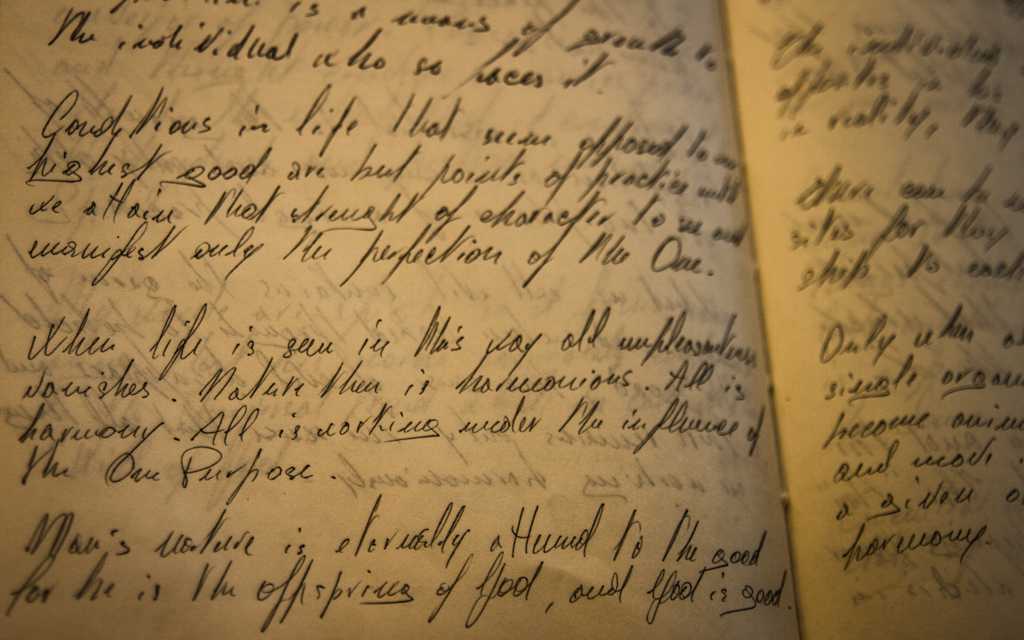 is a means of growth to
the individual who so faces it.
Conditions in life that seem opposed to our
highest good are but points of practice until
we attain that strenght of character to see and
manifest only the perfection of the One.
When life is seen in this way all unpleasantness
vanishes. Nature then is harmonious. All is
harmony. All is working under the influence of
the One Purpose.
Man's nature is eternally attuned to the good
for he is the offspring of God, and God is good.
the individual
opposites in his
in reality, they
there can be no
sites for they
ship to each
Only when a
single organ
become
and mode
a given
harmony.